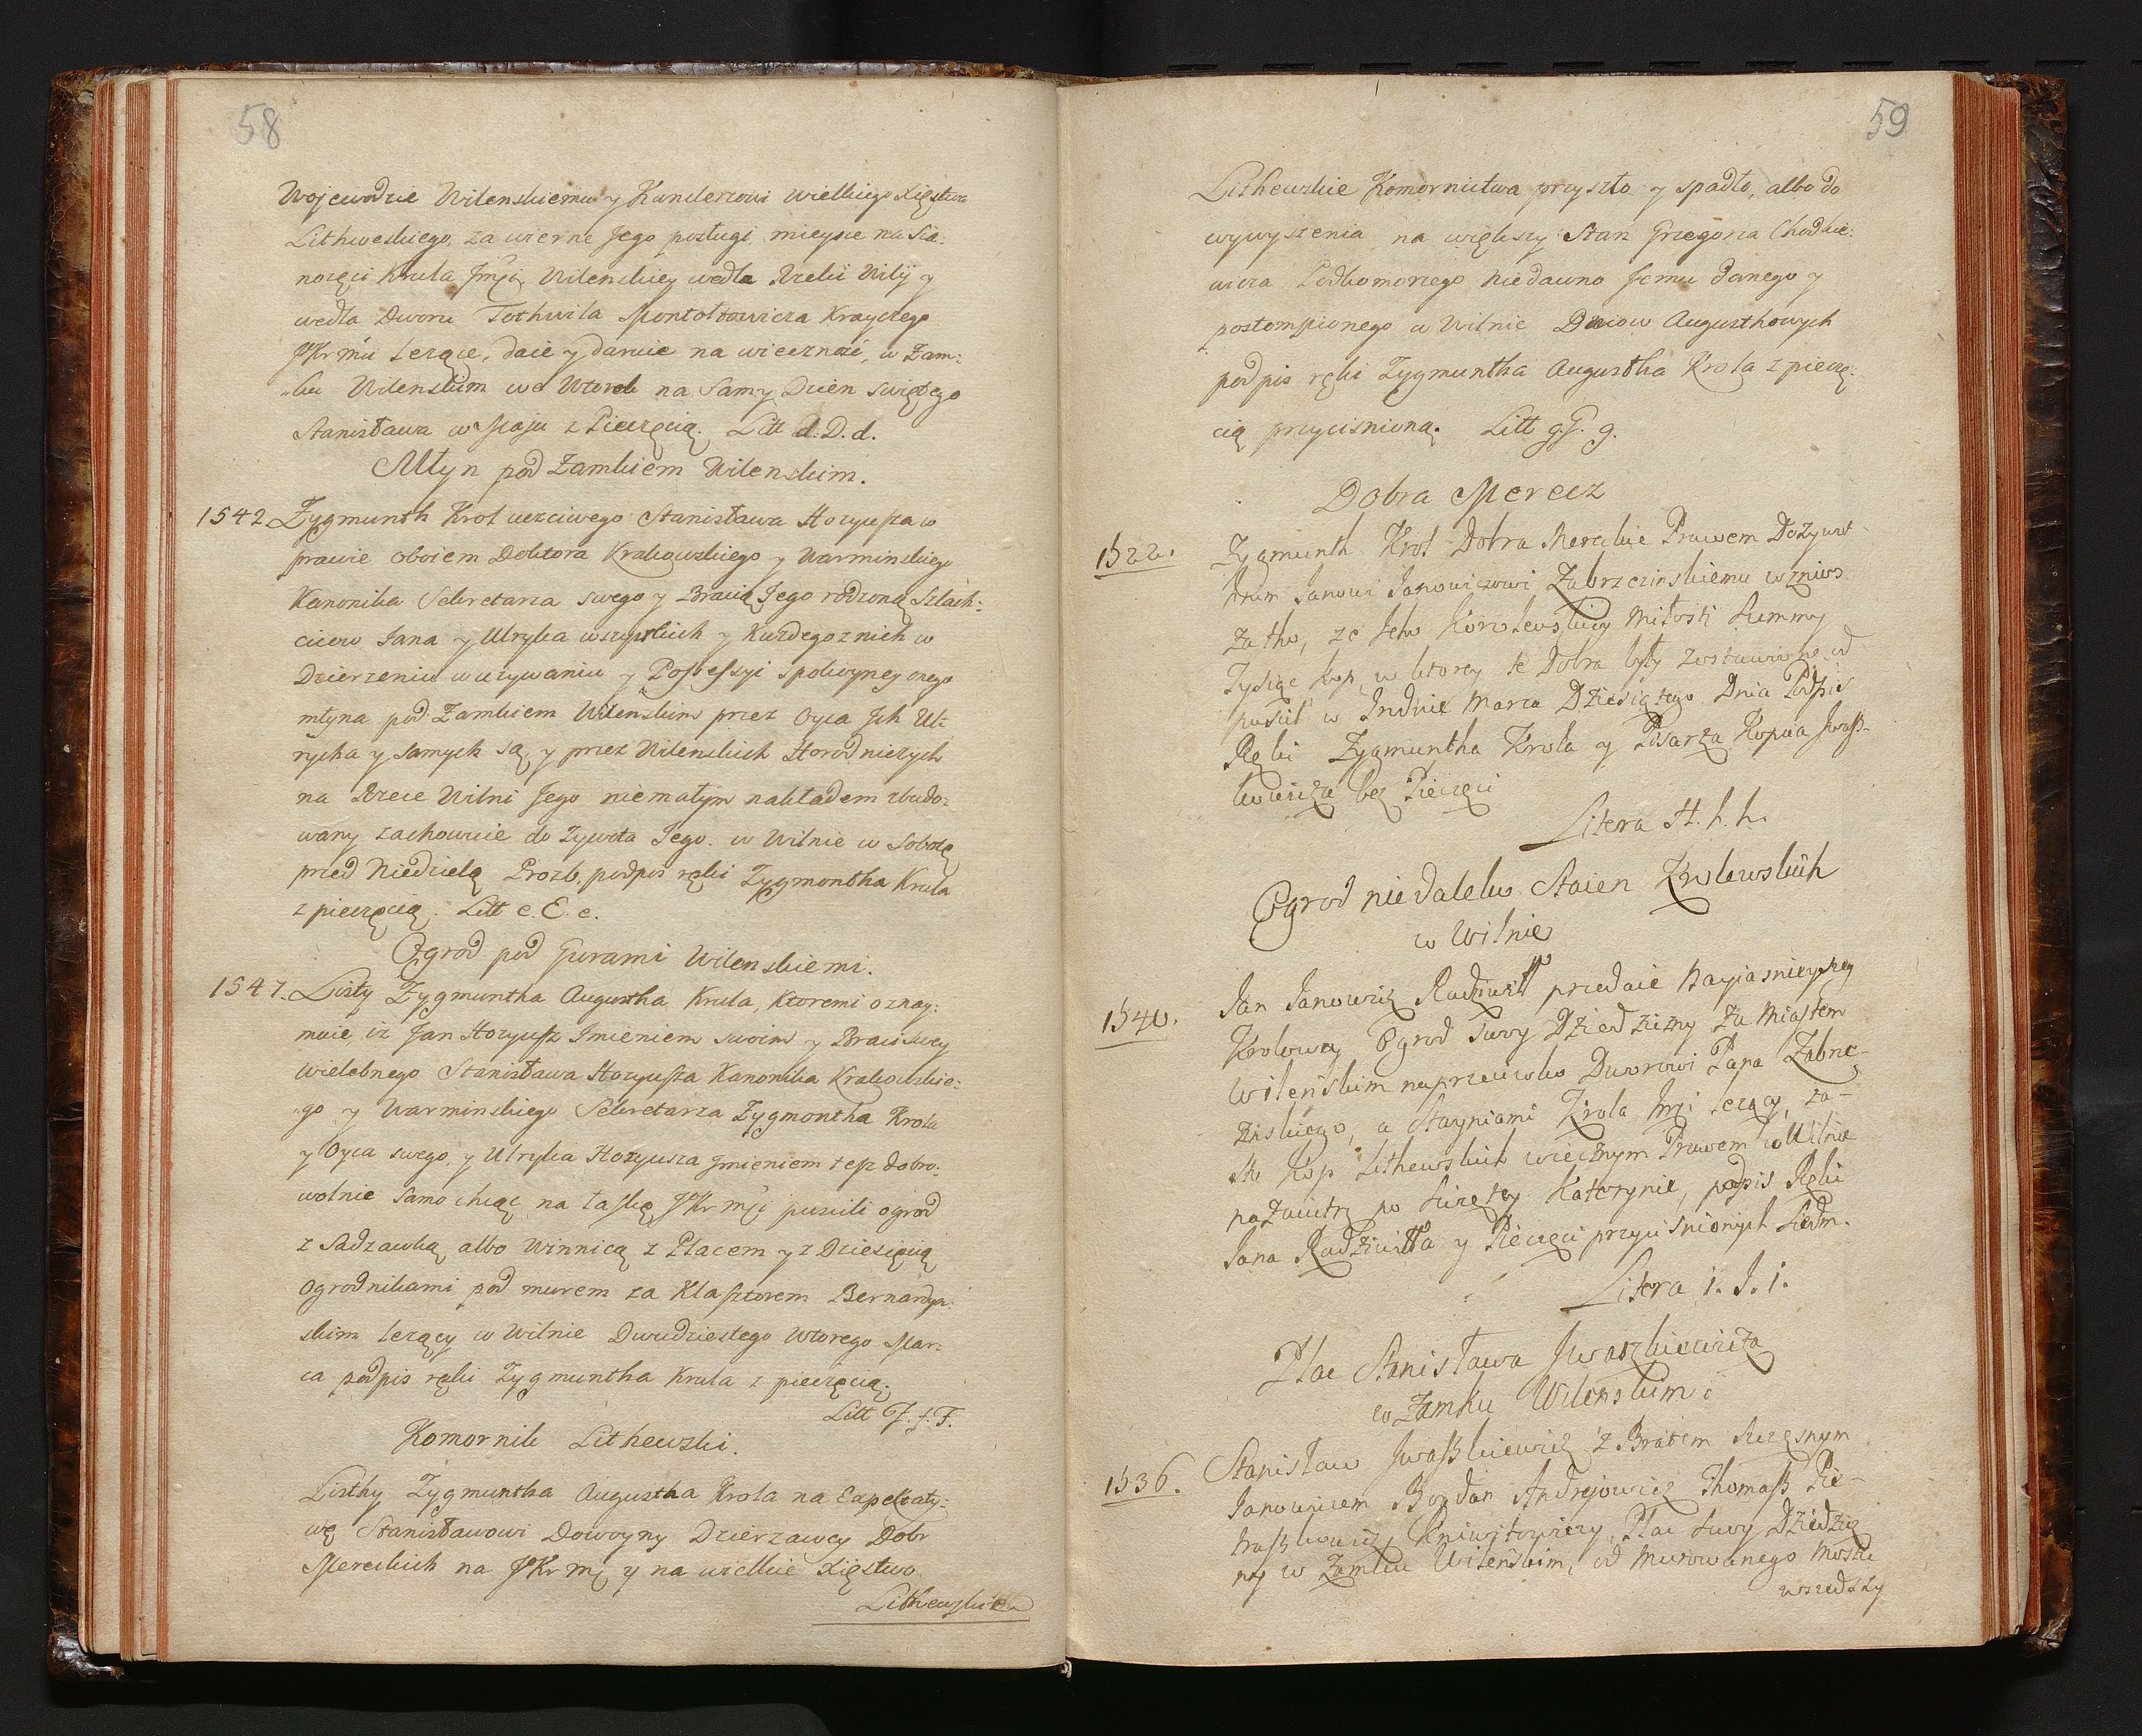 58
Wojewodzie Wilenskiemu y Kanclerzowi Wielkiego Xięstwa
Lithweskiego, za wierne Jego posługi, mieysce na Sia:
nożęci Krula Jmći, Wilenskiey wedla Rzeki Wilij y
wedla Dworu Tothwila Montołtowicza Krayczego
JKrmći leżące, daie y daruie na wieczność, w Zam:
ku Wilenskim we Wtorek na Samy Dzien Swiętego
Stanisława w Maju z Pieczęcią. Litt d. D. d.
Młyn pod Zamkiem Wilenskim.
1542. Zygmunth Krol uczciwego Stanisława Hozyusza w
prawie oboiem Doktora Krakowskiego y Warminskiego
Kanonika Sekretarza swego y Bracią Jego rodzoną Szlach:
cicow Jana y Ulryka wszystkich y Kużdego z nich w
Dzierzeniu w używaniu y Possessyi spokoyney onego
młyna pod Zamkiem Wilenskim przez Oyca Jch Ul:
rycha y samych są y przez Wilenskich Horodniczych
na Rzece Wilni Jego niemałym nakładem zbudo:
wany zachowuie do Zywota Jego. w Wilnie w Sobotę
przed Niedzielą Prozb. podpis ręki Zygmontha Krula
z pieczęcią. Litt e. E. e.
Ogrod pod Gurami Wilenskiemi.
1547. Listy Zygmuntha Augustha Krula, Ktoremi oznay:
muie, iż Jan Hozyusz Imieniem swoim y Braci swey
Wielebnego Stanisława Hozyusza Kanonika Krakowskie:
go y Warminskiego Sekretarza Zygmontha Krola
y Oyca swego, y Ulryka Hozyusza Jmieniem tesz dobro:
wolnie samo chcąc na łaskę JKr mći puscili ogrod
z Sadzawką albo Winnicą z Placem y z Dziesięcią
Ogrodnikami pod murem za Klasztorem Bernardyn:
skim leżący w Wilnie Dwudziestego Wtorego Mar:
ca podpis ręki Zygmuntha Krula z pieczęcią.
Litt F. f. F.
Komornik Lithewski.
Listhy Zygmuntha Augustha Krola na Expektaty:
wę Stanisławowi Dowoyny Dzierzawcy Dobr
Mereckich na JKr mć y na wielkie Xięstwo
Lithewskie
59
Lithewskie Komornictwa przyszło y spadło, albo do
wywyszenia na większy Stan Grzegorza Chodkie:
wicza Podkomorzego niedawno Jemu danego y
postompionego w Wilnie Dniow Augusthowych
podpis ręki Zygmuntha Augustha Krola z pieczę:
cią przycisnioną. Litt g. G. g.
Dobra Merecz
1522. Zygmunth Krol Dobra Mereckie Prawem Dożywot
Janowi Janowiczowi Zabrzezinskiemu
za tho, że Jeho Korolewskiey Miłosti Summy
Tysiąc kop, w ktorey te Dobra były zostawione od
puścił w Jndnie Marca Dziesiątego Dnia Podpis
Ręki Zygmuntha Krola y Pisarza Kopcia Jwasz-
kowicza bez Pieczęci
Litera H. h. h.
Ogrod niedaleko Staien Krolewskich
w Wilnie
1540. Jan Janowicz Radziwiłł przedaie Nayiasnieyszey
Krolowey Ogrod swoy Dziedziczny za Miastem
Wileńskim naprzeciwko Dworowi Pana Zabrze-
zinskiego, a Stayniami Krola Jmći leżący, za-
sto Kop Lithewskich wiecznym Prawem w Wilnie
nazaiutrz po Swiętey Katerynie, podpis Ręki
Jana Radziwiłła y Pieczęci przycisnionych Siedm.
Litera i. J. i.
Plac Stanisława Jwaszkiewicza
w Zamku Wilenskim
1536. Stanisław Jwaszkiewicz z Bratem Szczęsnym
Janowiczem Bogdan Andrejowicz Thomasz Pie-
traszkowicz Kniwitowiczy, Plac swoy Dziedzicz
ny w Zamku Wileńskim, od Murowanego Mostu
wszedszy